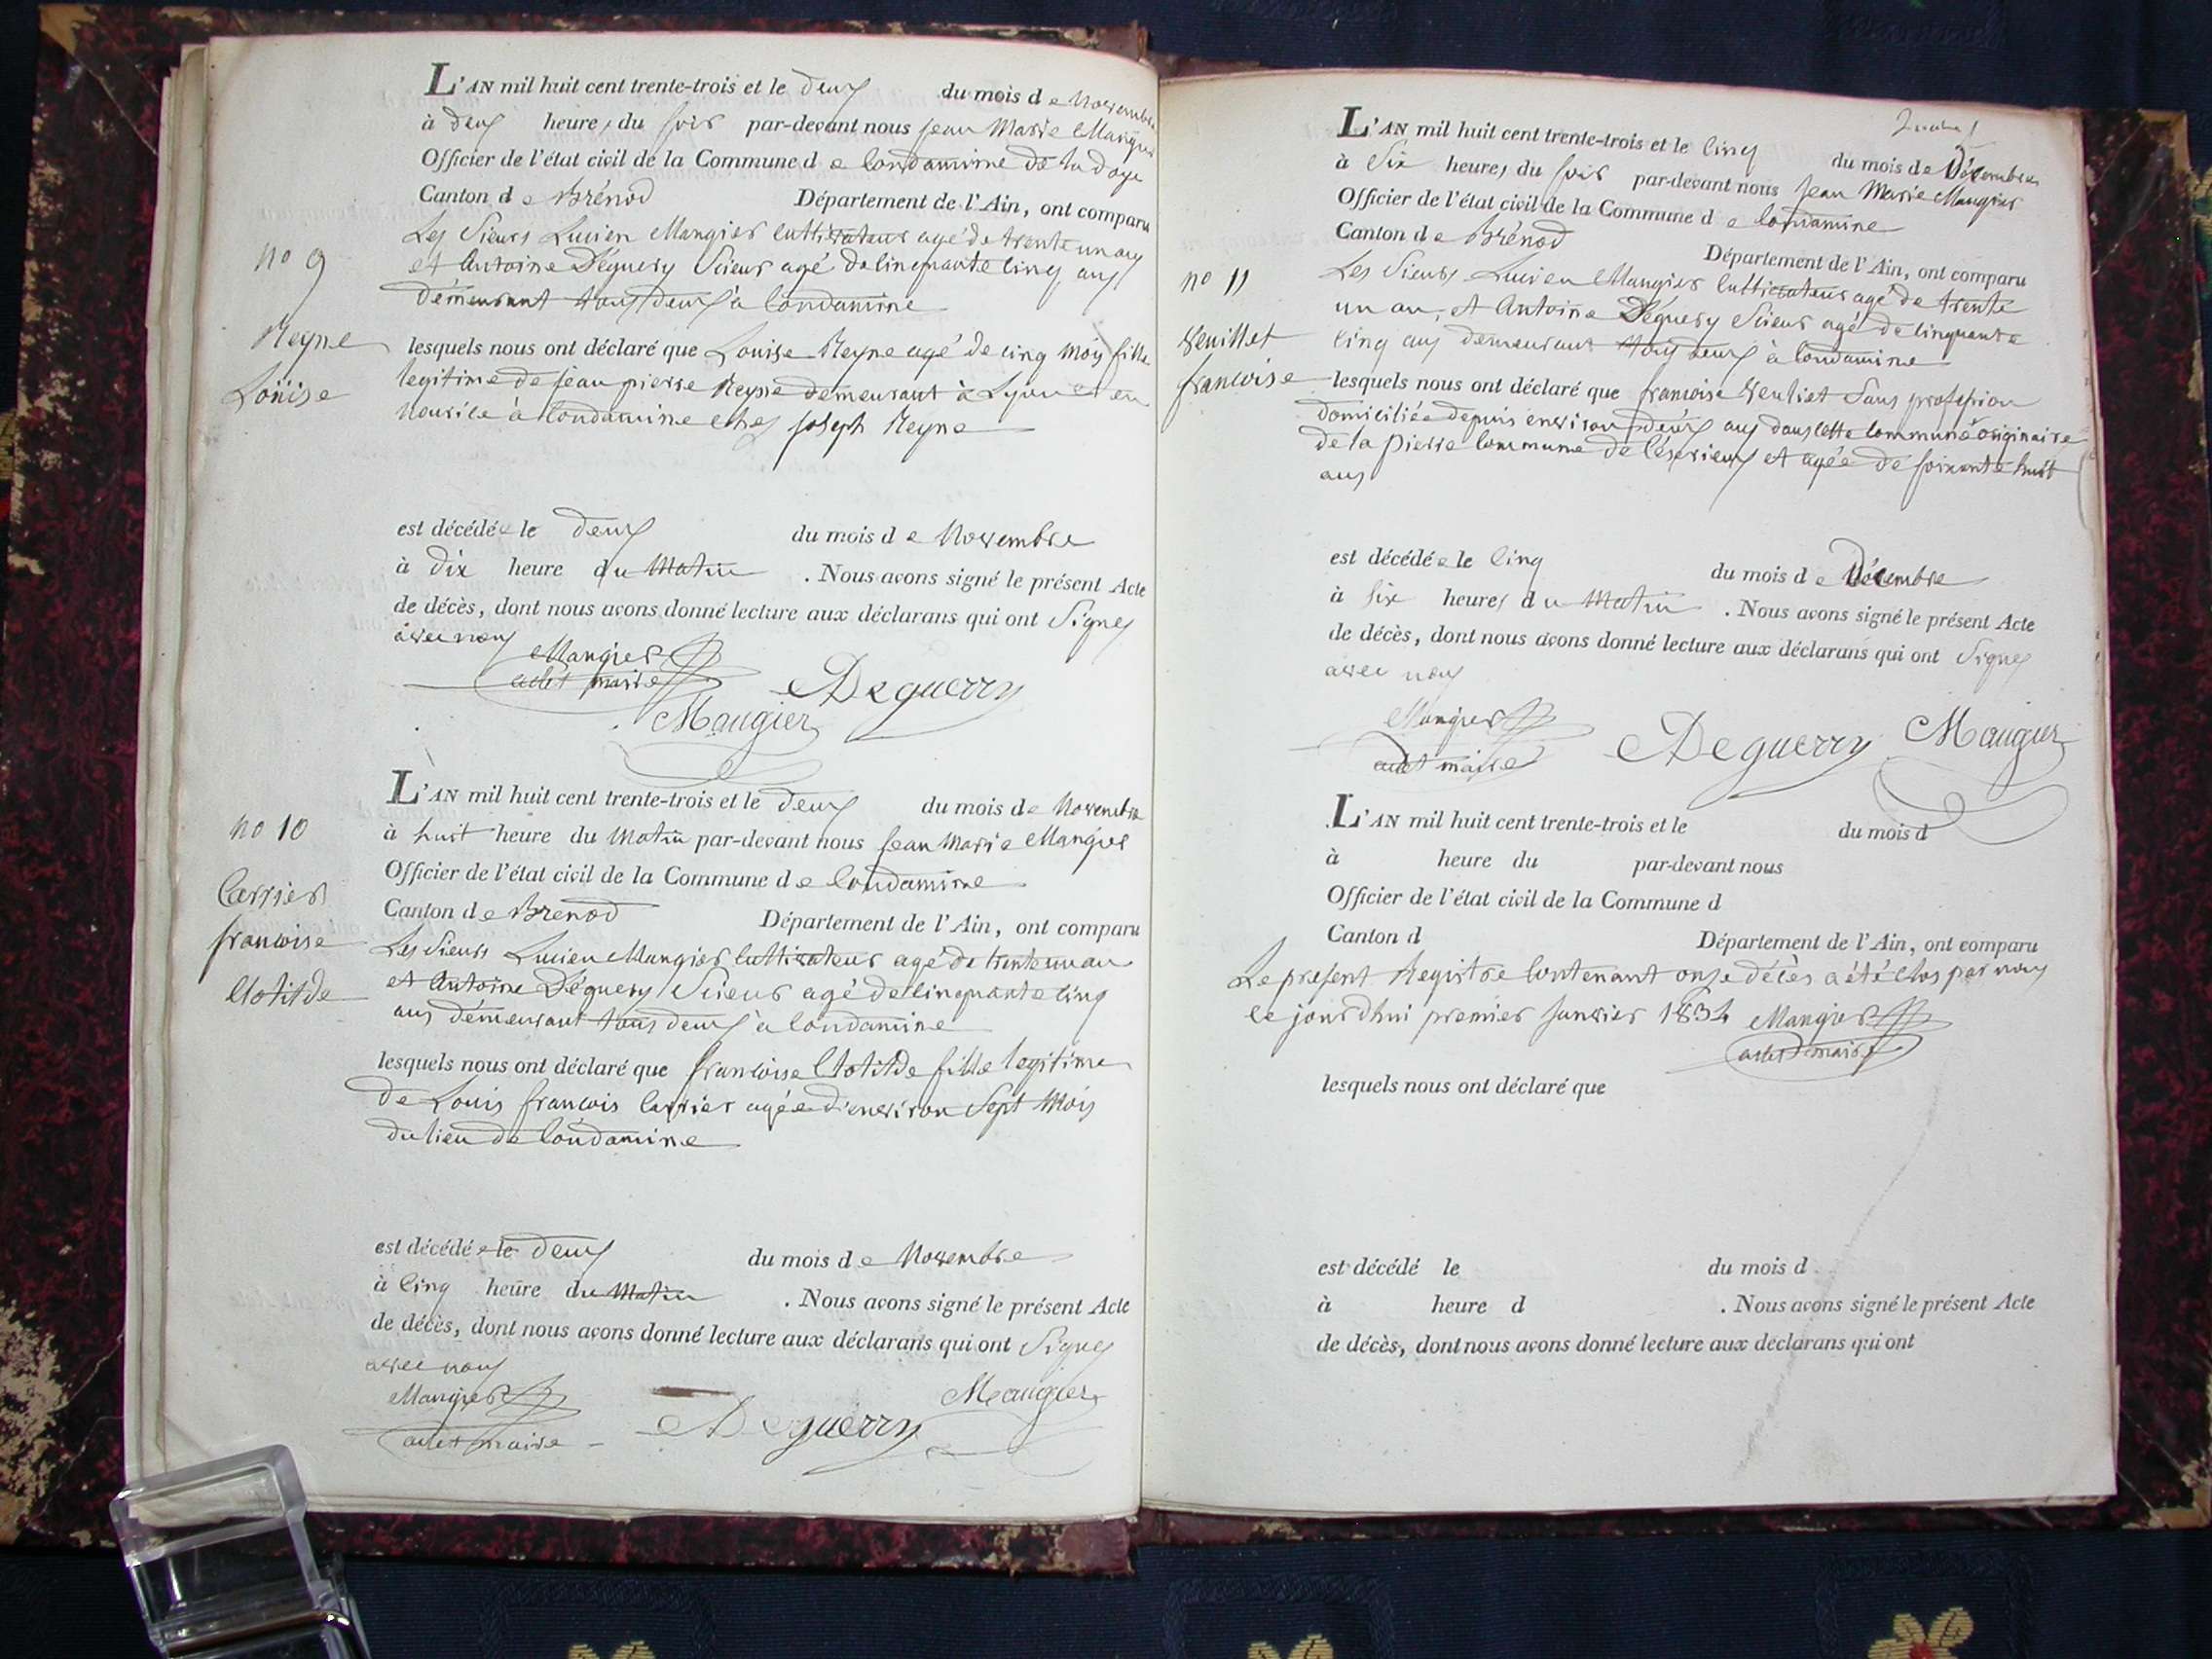 L'AN mil huit cent trente-trois et le deux du mois de Novembre
à deux heures du soir par-devant nous jean Marie Maugier
Officier de l'état civil de la Commune de Condamine de la doye
Canton de Brénod Département de l'Ain, ont comparu
Les Sieurs Lucien Maugier cultivateur agé de trente un ans
et Antoine Déguery Scieur agé de cinquante cinq ans
démeurant tous deux à Condamine
no 9
Reyne
Loüise
lesquels nous ont déclaré que Louise Reyne agé de cinq mois fille
legitime de jean pierre Reyne demeurant à Lyon et en
Nourice à Condamine chez joseph Reyne
est décédée le deux du mois de Novembre
à dix heure du Matin . Nous avons signé le présent Acte
de décès, dont nous avons donné lecture aux déclarans qui ont Signés
avec nous
Maugier
adet maire
Deguerry
Maugier
L'AN mil huit cent trente-trois et le deux du mois de Novembre
à huit heure du Matin par-devant nous jean Marie Maugier
Officier de l'état civil de la Commune de Condamine
Canton de Brenod Département de l'Ain, ont comparu
Les Sieurs Lucien Maugier cultivateur agé de trente un an
et Antoine Déguery Scieur agé de cinquante cinq
ans démeurant tous deux à Condamine
no 10
Carrier
francoise
Clotilde
lesquels nous ont déclaré que francoise Clotilde fille legitime
de Louis francois Carrier agée d'environ Sept Mois
du lieu de Condamine
est décédée le deux du mois de Novembre
à cinq heure du Matin . Nous avons signé le présent Acte
de décès, dont nous avons donné lecture aux déclarans qui ont Signés
avec nous
Maugier
adet maire
Deguerry
Maugier
L'AN mil huit cent trente-trois et le cinq du mois de Décembre
à Six heures du soir par-devant nous jean Marie Maugier
Officier de l'état civil de la Commune de Condamine
Canton de Brénod Département de l'Ain, ont comparu
Les Sieurs Lucien Maugier cultivateur agé de trente
un an, et Antoine Déguery Scieur agé de cinquante
cinq ans demeurant tous deux à Condamine
no 11
Veuillet
francoise
lesquels nous ont déclaré que francoise Veuliet Sans profession
domiciliée depuis environ deux ans dans cette commune originaire
de la pierre Commune de et agée de soixante huit
ans
est décédée le cinq du mois de Décembre
à six heures du Matin . Nous avons signé le présent Acte
de décès, dont nous avons donné lecture aux déclarans qui ont Signés
avec nous
Maugier
adet maire
Deguerry
Maugier
L'AN mil huit cent trente-trois et le du mois d
à heure du par-devant nous
Officier de l'état civil de la Commune d
Canton d Département de l'Ain, ont comparu
Le present Registre contenant onze décès a été clos par nous
ce jourdhui premier janvier 1834 Maugier
adet maire
lesquels nous ont déclaré que
est décédé le du mois d
à heure d . Nous avons signé le présent Acte
de décès, dont nous avons donné lecture aux declarans qui ont